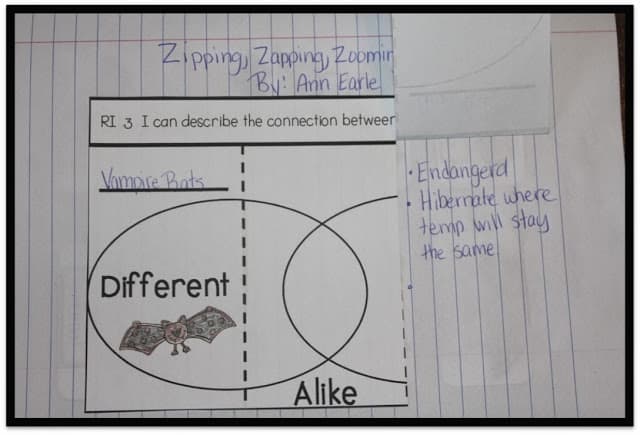 Zipping, Zapping, Zoomin
By: Ann Earle
RI 3 I can describe the connection between
Vampire Bats
Different
Alike
• Endangerd
• Hibernate where
temp will stay
the same
•